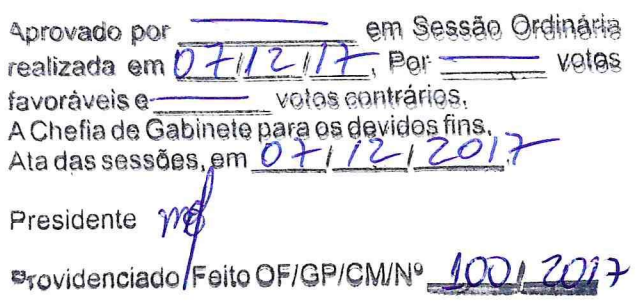 Aprovado por ______ em Sessão Ordinária
realizada em 07/12/17, Por ______ votos
favoráveis e ______ votos contrários.
A Chefia de Gabinete para os devidos fins.
Ata das sessões, em 07/12/2017
Presidente
Providenciado/Feito OF/GP/CM/Nº 100/2017